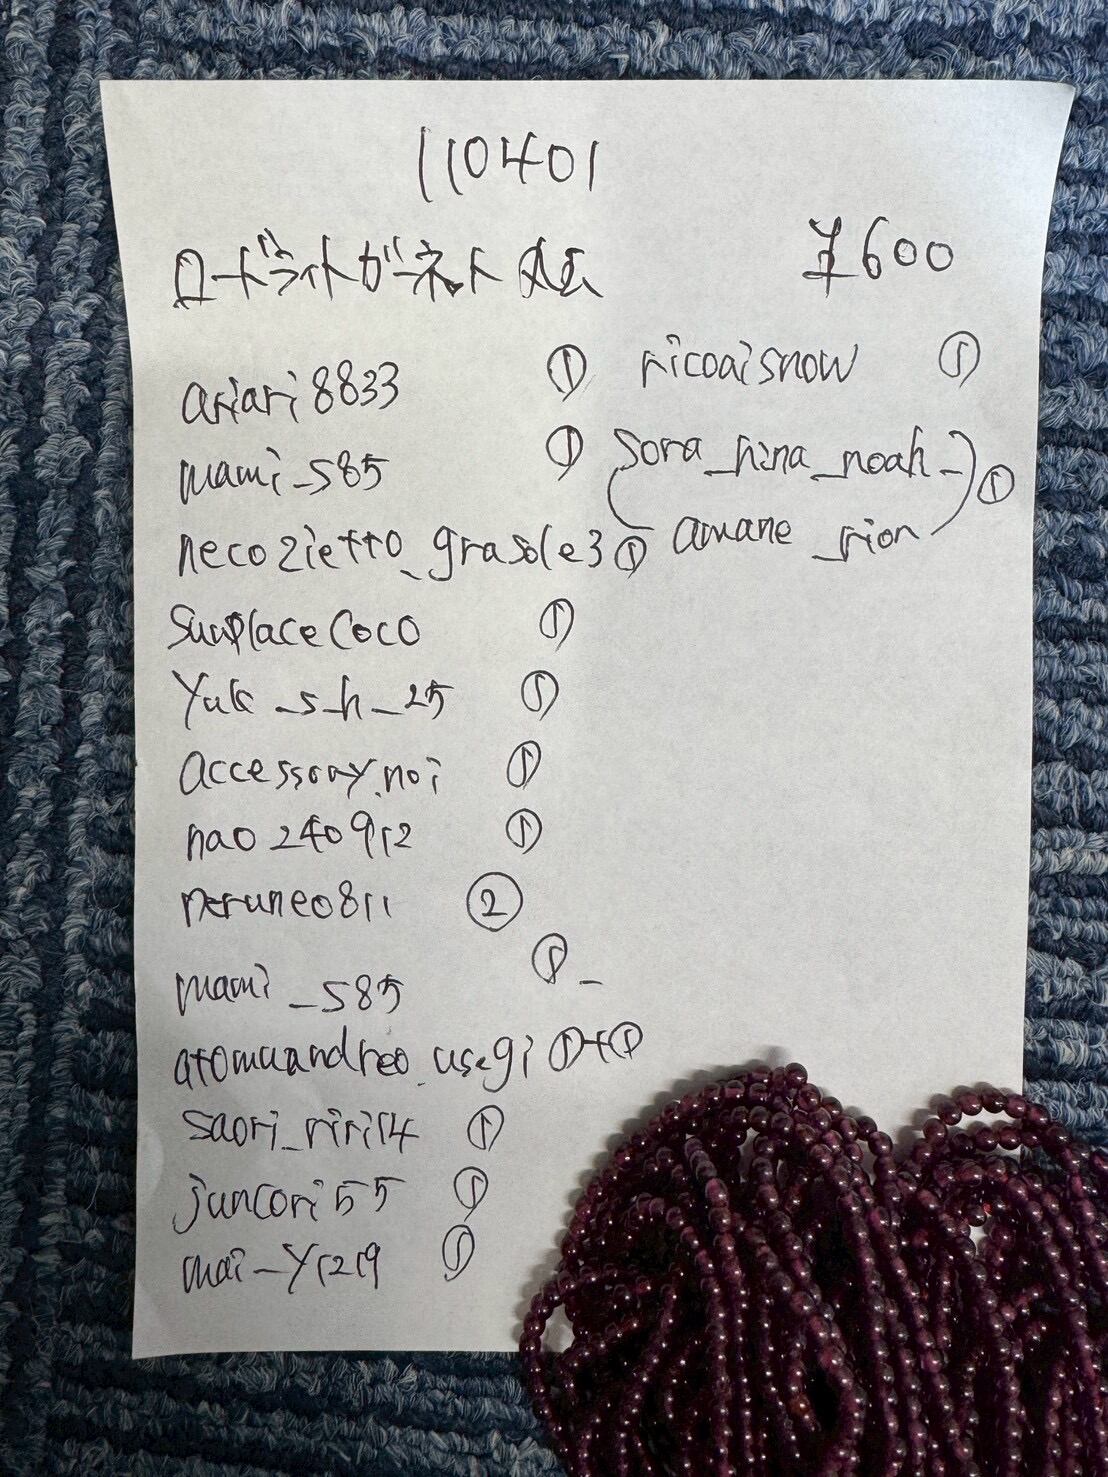 110401
ロードライトガーネット 丸玉
¥600
ariari8833 ①
mami_s85 ①
neco2ietto_grasole3 ①
sunplacecoco ①
yuk_s_h_25 ①
accessory.noi ①
nao240912 ①
neruneo811 ②
mami_s85 ①
atomuandreo.usagi ①+①
saori_riri14 ①
juncori55 ①
mai_y1219 ①
ricoaisnow ①
sora_hina_noah_ ①
amane_rion